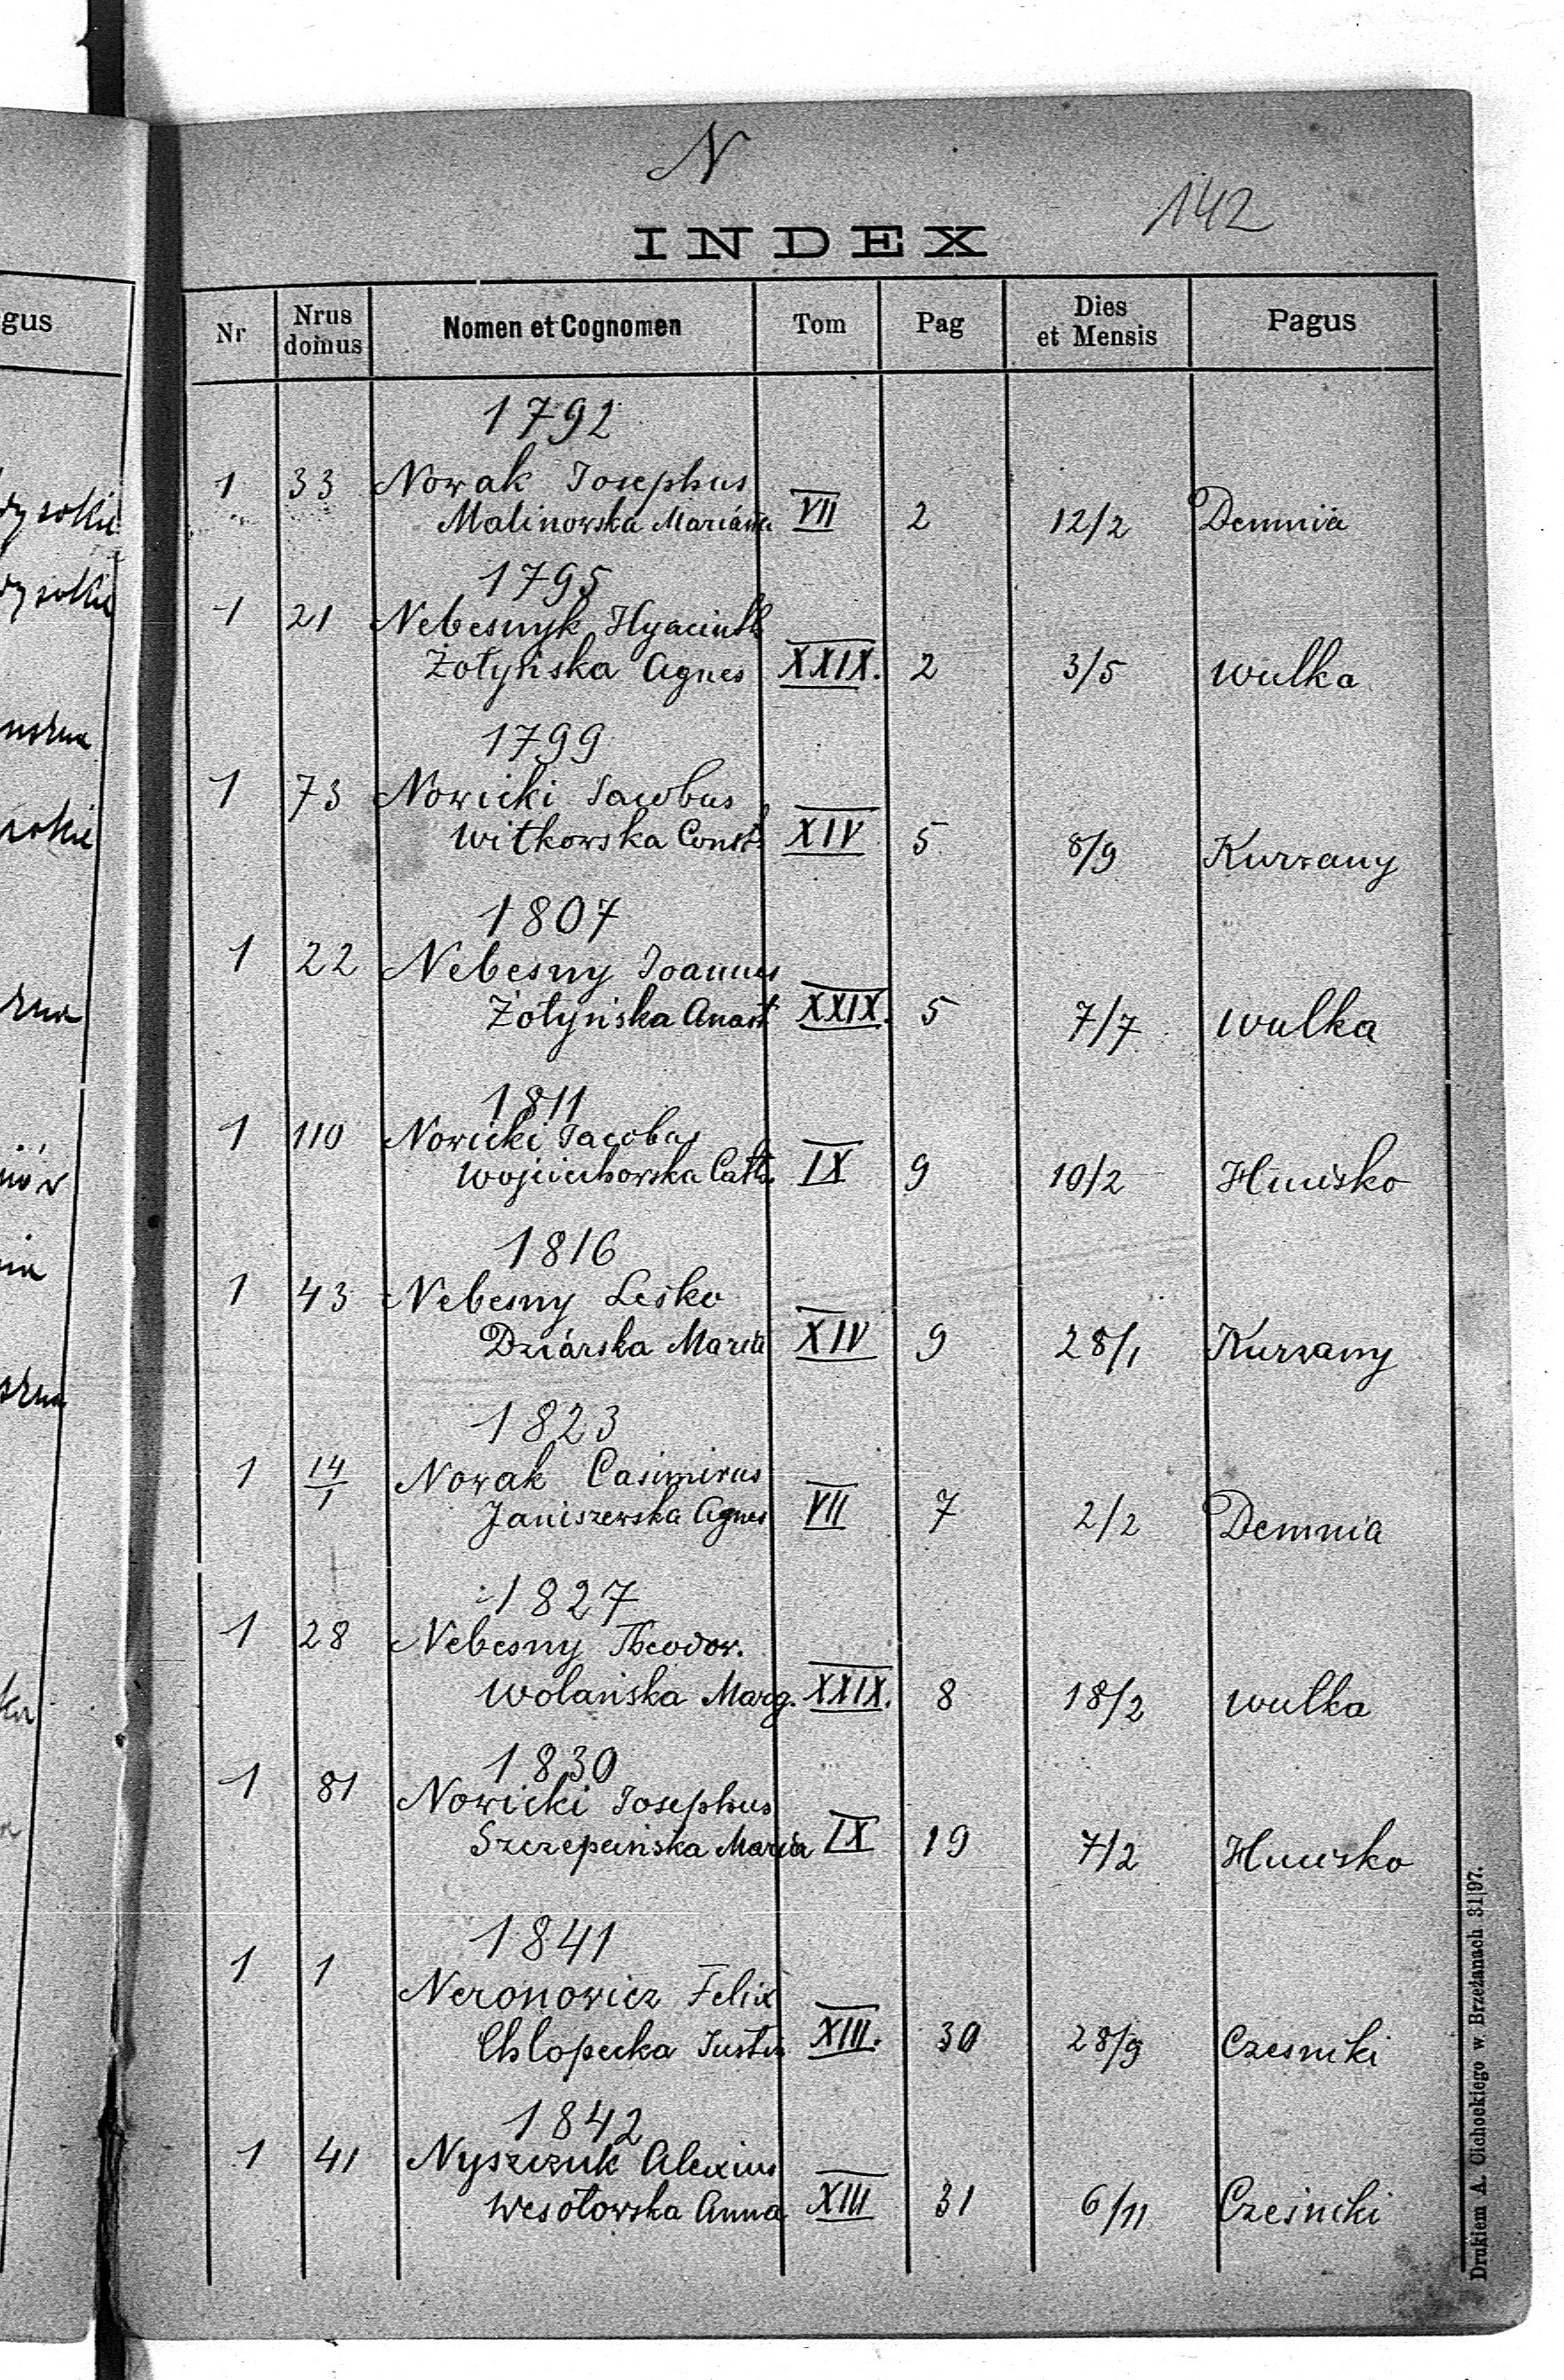 N
142
INDEX
Nr Nrus domus Nomen et Cognomen Tom Pag Dies et Mensis Pagus
1792
1 33 Nowak Josephus
Malinowska Marianna VII 2 12/2 Demnia
1795
1 21 Nebesnyk Hyacinth
Żołyńska Agnes XXIX. 2 3/5 Wulka
1799
1 73 Nowicki Jacobus
Witkowska Const. XIV 5 8/9 Kurzany
1807
1 22 Nebesny Joannes
Żołyńska Anast XXIX. 5 7/7 Wulka
1811
1 110 Nowicki Jacobus
Wojciechowska Cath. IX 9 10/2 Hucisko
1816
1 43 Nebesny Leśko
Dziárska Maria XIV 9 28/1 Kurzany
1823
1 14/1 Nowak Casimirus
Janiszewska Agnes VII 7 2/2 Demnia
1827
1 28 Nebesny Theodor.
Wolańska Marg. XXIX. 8 18/2 Wulka
1830
1 81 Nowicki Josephus
Szczepańska Maria IX 19 7/2 Hucisko
1841
1 1 Neronowicz Felix
Chlopecka Justin XIII. 30 28/9 Czesniki
1842
1 41 Nyszczuk Alexius
Wesołowska Anna XIII 31 6/11 Cześniki
Drukiem A. Cichockiego w Brzeżanach 31|97.
gus